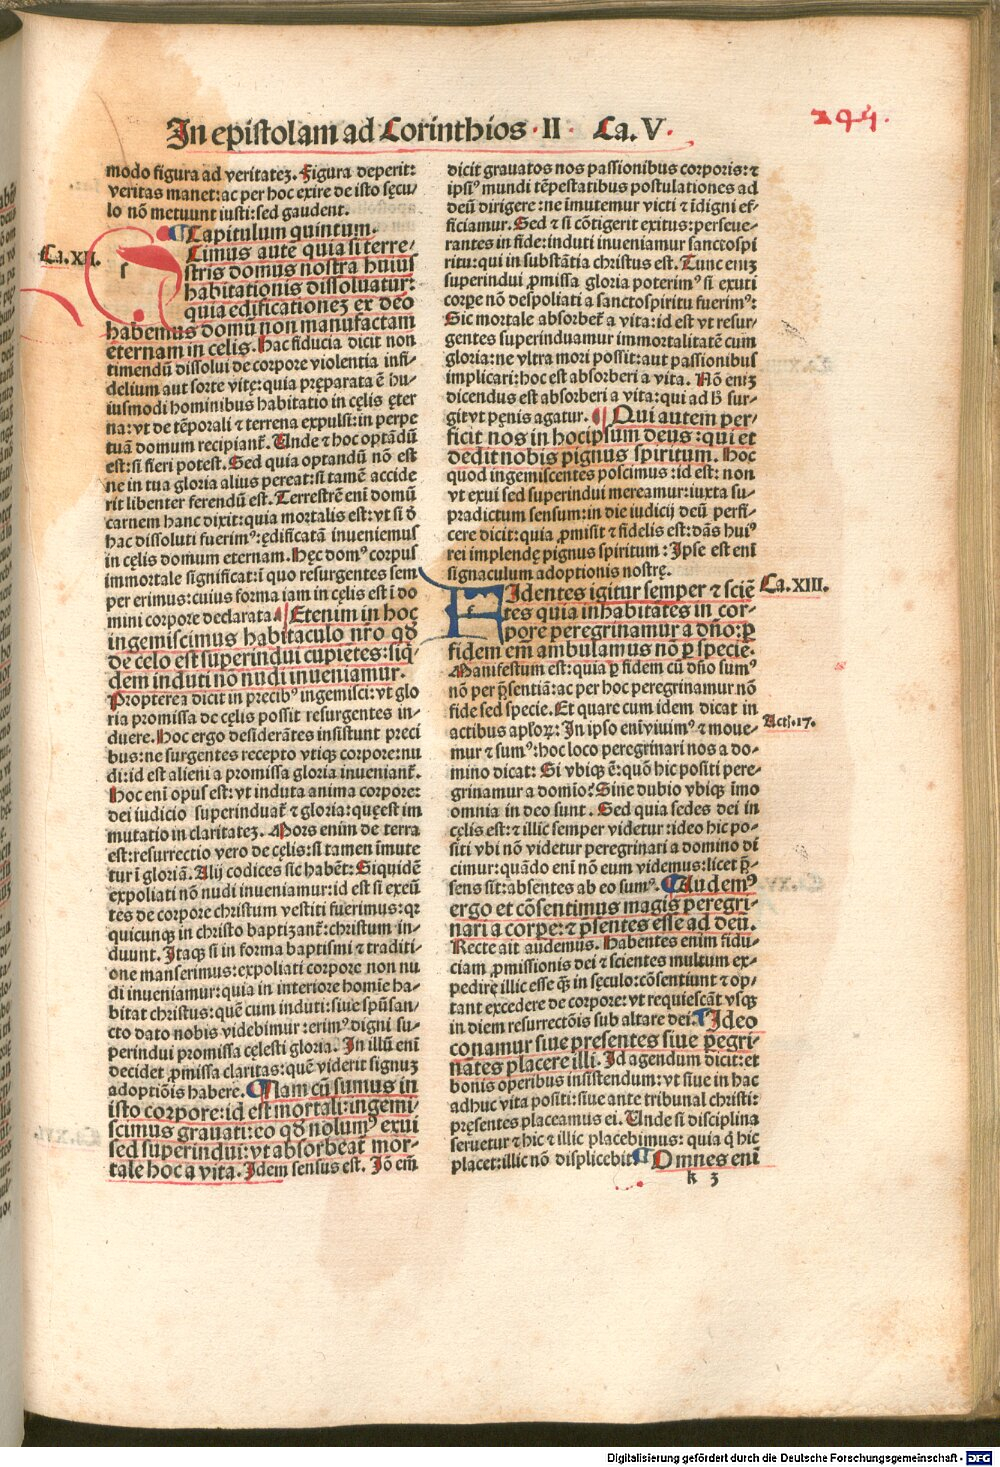 In epistolam ad Corinthios · II · Ca. V ·
294.
modo figura ad veritatez. Figura deperit:
veritas manet: ac per hoc exire de isto sęcu
lo nō metuunt iusti: sed gaudent.
Capitulum quintum.
Ca. XII.
Cimus autē quia si terre⸗
stris domus nostra huius
habitationis dissoluatur:
quia edificationez ex deo
habemus domū non manufactam
eternam in celis. Hac fiducia dicit non
timendū dissolui de corpore violentia infi⸗
delium aut sorte vitę: quia pręparata ē hu⸗
iusmodi hominibus habitatio in cęlis ęter
na: vt de tēporali ⁊ terrena expulsi: in perpe
tuā domum recipiant᷑. Unde ⁊ hoc optādū
est: si fieri potest. Sed quia optandū nō est
ne in tua gloria alius pereat: si tamē accide
rit libenter ferendū est. Terrestrē eni domū
carnem hanc dixit: quia mortalis est: vt si d̄
hac dissoluti fuerimꝰ: ędificatā inueniemus
in cęlis domum eternam. Hęc domꝰ corpus
immortale significat: ī quo resurgentes sem
per erimus: cuius forma iam in cęlis est ī do
mini corpore declarata. Etenim in hoc
ingemiscimus habitaculo nr̄o qd̄
de celo est superindui cupiētes: siq̇
dem induti nō nudi inueniamur.
Propterea dicit in precibꝰ ingemisci: vt glo
ria promissa de cęlis possit resurgentes in⸗
duere. Hoc ergo desiderātes insistunt preci
bus: ne surgentes recepto vtiqꝫ corpore: nu
di: id est alieni a promissa gloria inueniant᷑.
Hoc eni opus est: vt induta anima corpore:
dei iudicio superinduat᷑ ⁊ gloria: quę est im
mutatio in claritatez. Mors enim de terra
est: resurrectio vero de cęlis: si tamen īmute
tur ī gloriā. Alij codices sic habēt: Siquidē
expoliati nō nudi inueniamur: id est si exeū
tes de corpore christum vestiti fuerimus: qꝛ
quicunqꝫ in christo baptizant᷑: christum in⸗
duunt. Itaqꝫ si in forma baptismi ⁊ traditi⸗
one manserimus: expoliati corpore non nu
di inueniamur: quia in interiore homīe ha⸗
bitat christus: quē cum induti: siue spūsan⸗
cto dato nobis videbimur: erimꝰ digni su⸗
perindui promissa cęlesti gloria. In illū eni
decidet ꝓmissa claritas: quē viderit signuz
adoptiōis habere. Nam cū sumus in
isto corpore: id est mortali: ingemi⸗
scimus grauati: eo qd̄ nolumꝰ exui
sed superindui: vt absorbeat᷑ mor⸗
tale hoc a vita. Idem sensus est. Iō em̄
dicit grauatos nos passionibus corporis: ⁊
ipsiꝰ mundi tēpestatibus postulationes ad
deū dirigere: ne īmutemur victi ⁊ īdigni ef⸗
ficiamur. Sed ⁊ si cōtigerit exitus: perseue⸗
rantes in fide: induti inueniamur sanctospi
ritu: qui in substātia christus est. Tunc eniz
superindui ꝓmissa gloria poterimꝰ si exuti
corpe nō despoliati a sanctospiritu fuerimꝰ:
Sic mortale absorbet᷑ a vita: id est vt resur⸗
gentes superinduamur immortalitatē cum
gloria: ne vltra mori possit: aut passionibus
implicari: hoc est absorberi a vita. Nō eniz
dicendus est absorberi a vita: qui ad h̄ sur⸗
git vt pęnis agatur. Qui autem per⸗
ficit nos in hoc ipsum deus: qui et
dedit nobis pignus spiritum. Hoc
quod ingemiscentes poscimus: id est: non
vt exui sed superindui mereamur: iuxta su⸗
pradictum sensum: in die iudicij deū perfi⸗
cere dicit: quia ꝓmisit ⁊ fidelis est: dās huiꝰ
rei implendę pignus spiritum: Ipse est eni
signaculum adoptionis nostrę.
Ca. XIII.
Identes igitur semper ⁊ sciē
tes quia inhabitātes in cor⸗
pore peregrinamur a dn̄o: ꝑ
fidem em̄ ambulamus nō ꝑ speciē.
Manifestum est: quia ꝑ fidem cū dn̄o sumꝰ
nō per pr̄sentiā: ac per hoc peregrinamur nō
fide sed specie. Et quare cum idem dicat in
actibus apl̓oꝝ: In ipso eni viuimꝰ ⁊ moue⸗
Act̓. 17.
mur ⁊ sumꝰ: hoc loco peregrinari nos a do⸗
mino dicat: Si vbiqꝫ ē: quō hic positi pere⸗
grinamur a domio? Sine dubio vbiqꝫ īmo
omnia in deo sunt. Sed quia sedes dei in
cęlis est: ⁊ illic semper videtur: ideo hic po⸗
siti vbi nō videtur peregrinari a domino di
cimur: quādo eni nō eum videmus: licet pr̄⸗
sens sit: absentes ab eo sumꝰ. Audemꝰ
ergo et cōsentimus magis peregri⸗
nari a corpe: ⁊ pr̄sentes esse ad deū.
Recte ait audemus. Habentes enim fidu⸗
ciam ꝓmissionis dei ⁊ scientes multum ex⸗
pedire illic esse qꝫ in sęculo: cōsentiunt ⁊ op⸗
tant excedere de corpore: vt requiescāt vsqꝫ
in diem resurrectōis sub altare dei. Ideo
conamur siue presentes siue ꝑegri⸗
nātes placere illi. Id agendum dicit: et
bonis operibus insistendum: vt siue in hac
adhuc vita positi: siue ante tribunal christi:
pręsentes placeamus ei. Unde si disciplina
seruetur ⁊ hic ⁊ illic placebimus: quia q̇ hic
placet: illic nō displicebit. Omnes eni
k 3
Digitalisierung gefördert durch die Deutsche Forschungsgemeinschaft - DFG